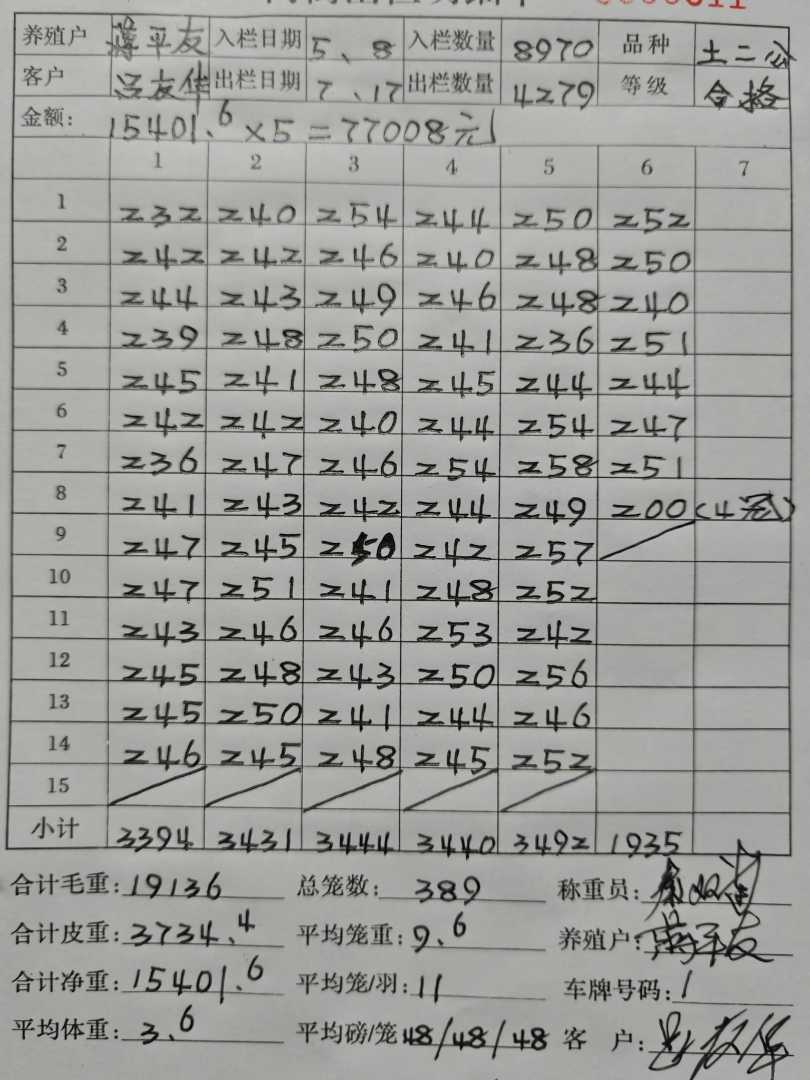 养殖户 蒋平友 入栏日期 5、8 入栏数量 8970 品种 土二公
客户 吕友华 出栏日期 7、17 出栏数量 4279 等级 合格
金额: 15401.6×5=77008元
1 2 3 4 5 6 7
1 232 240 254 244 250 252
2 242 242 246 240 248 250
3 244 243 249 246 248 240
4 239 248 250 241 236 251
5 245 241 248 245 244 244
6 242 242 240 244 254 247
7 236 247 246 254 258 251
8 241 243 242 244 249 200(4冠)
9 247 245 250 242 257
10 247 251 241 248 252
11 243 246 246 253 242
12 245 248 243 250 256
13 245 250 241 244 246
14 246 245 248 245 252
15
小计 3394 3431 3444 3440 3492 1935
合计毛重:19136 总笼数:389 称重员:
合计皮重:3734.4 平均笼重:9.6 养殖户:蒋平友
合计净重:15401.6 平均笼/羽:11 车牌号码:1
平均体重:3.6 平均磅/笼 48/48/48 客 户:吕友华